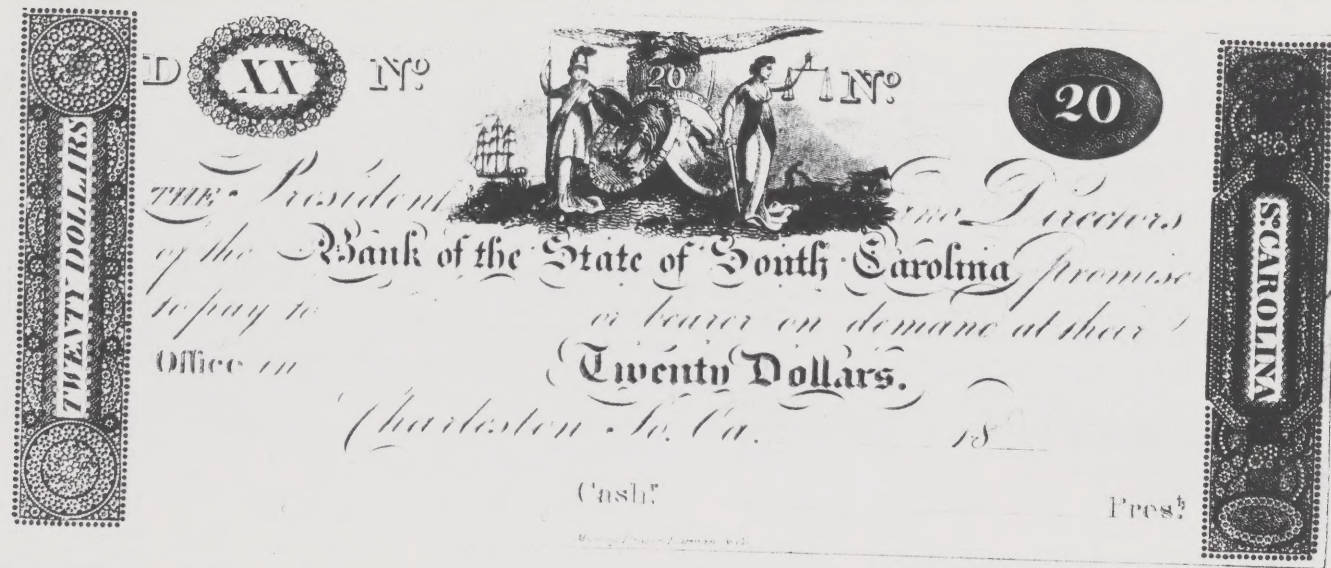 TWENTY DOLLARS
D XX Nº 20 Nº 20
THE President and Directors
of the Bank of the State of South Carolina promise
to pay to or bearer on demand at their
Office in Twenty Dollars.
Charleston So. Ca. 18
Cashr. Prest.
Sº CAROLINA